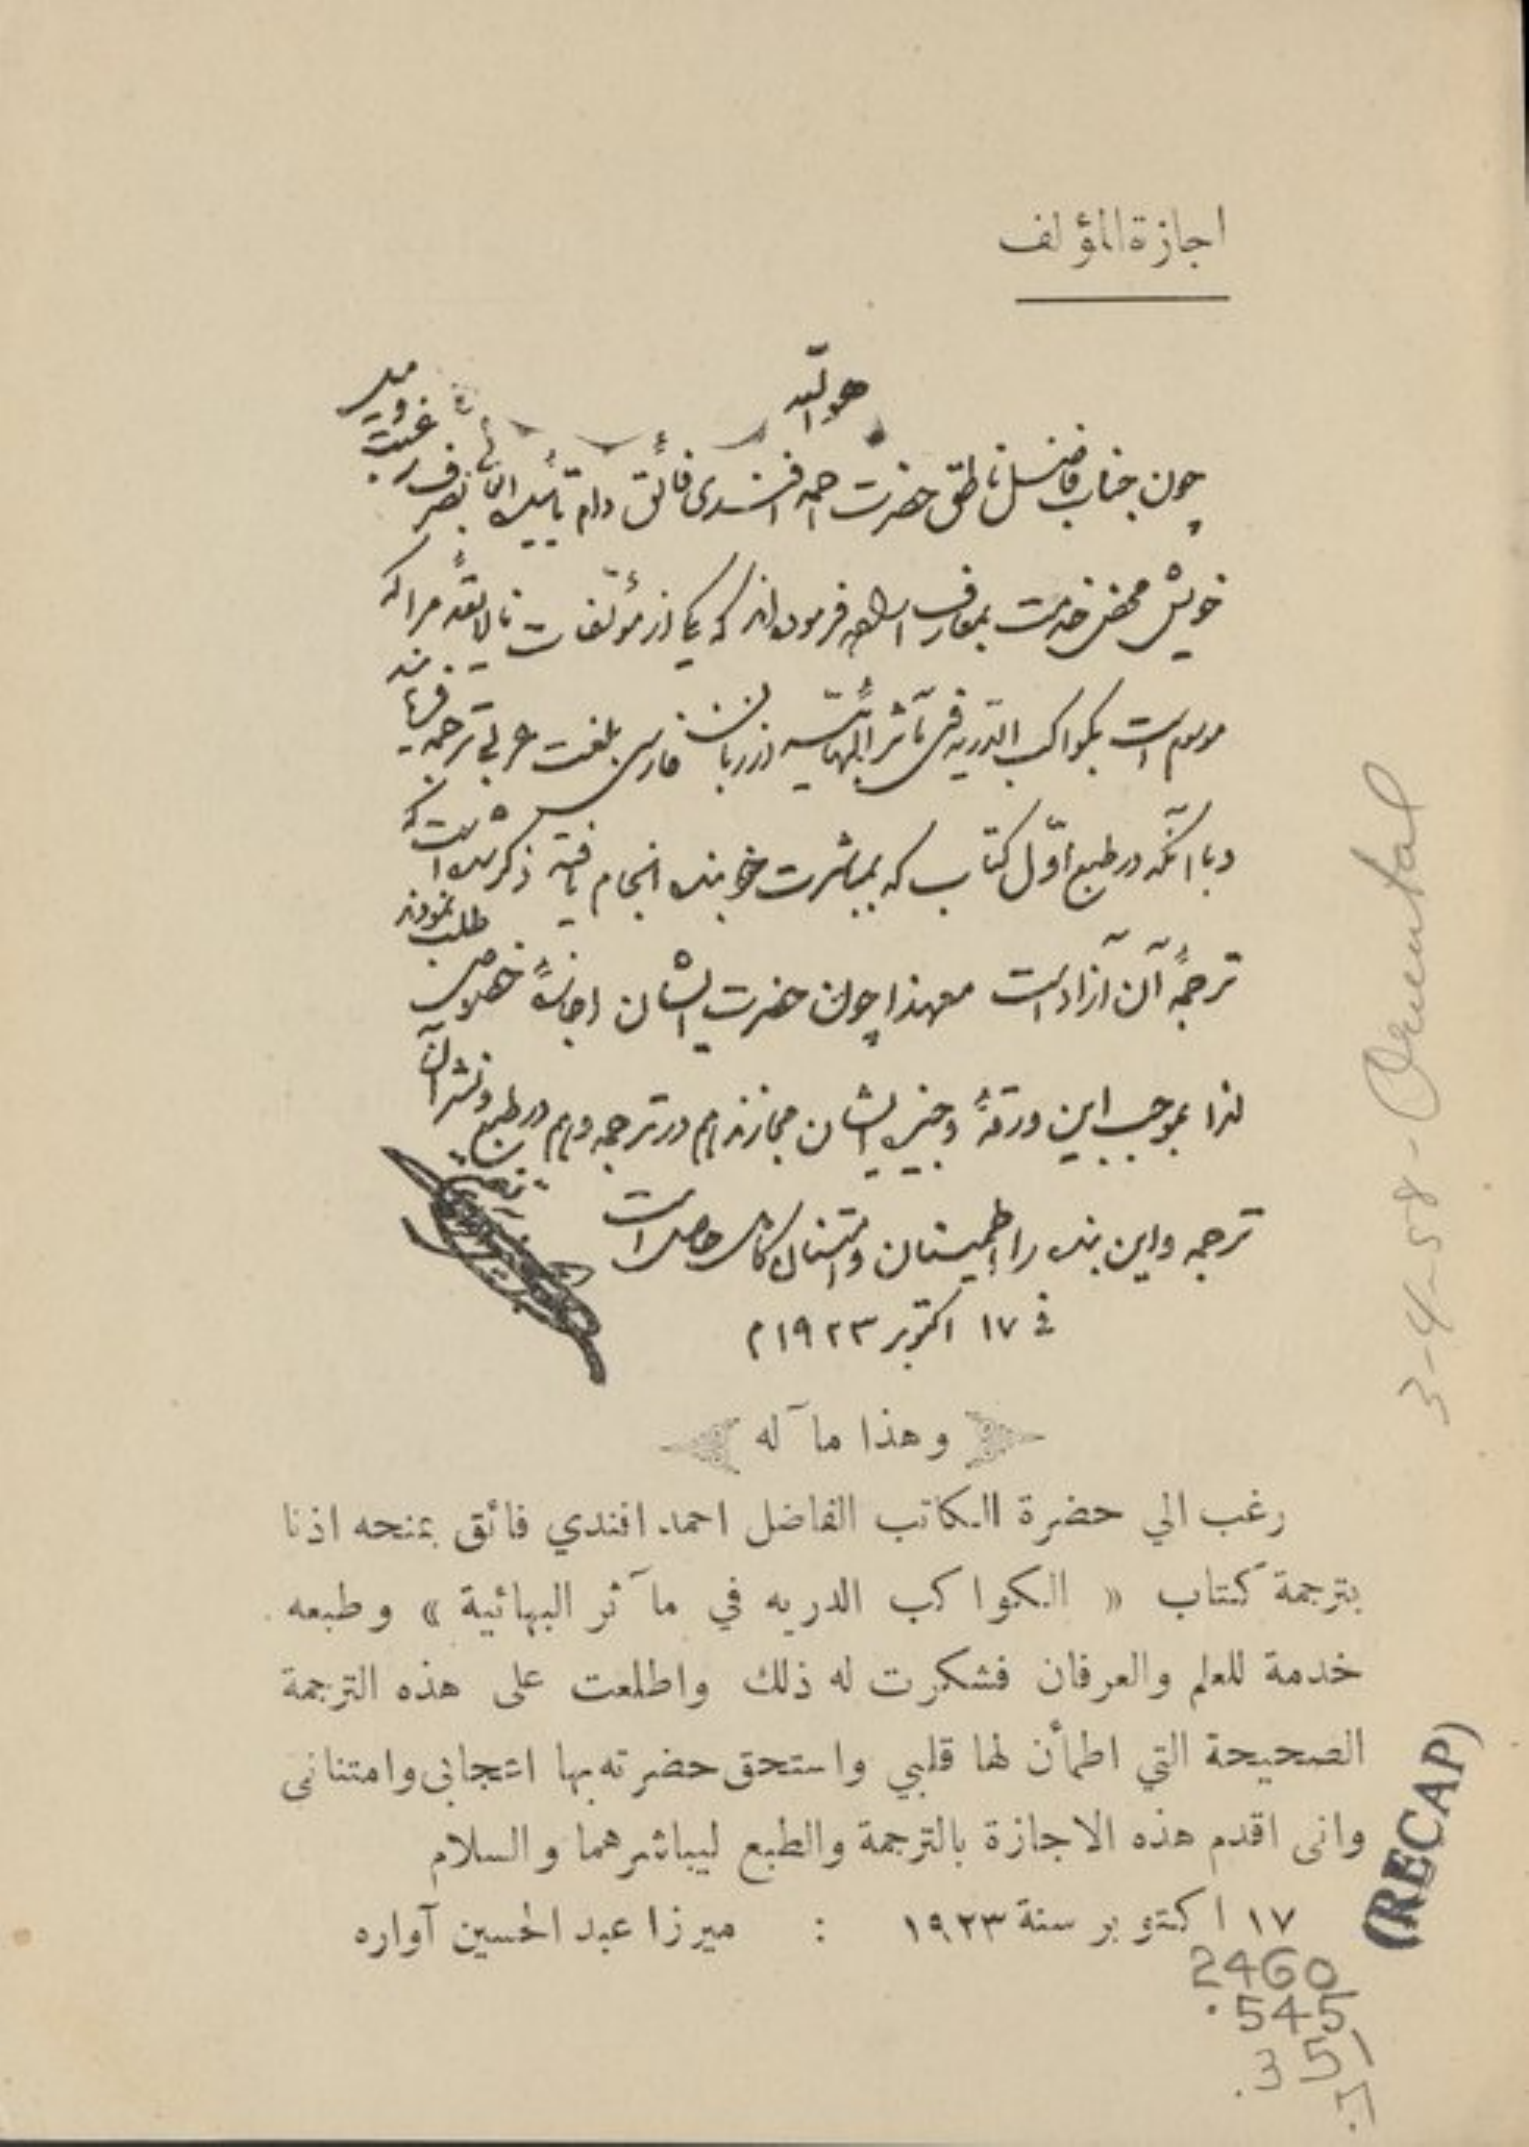 اجازة المؤلف
هو الله
چون جناب فاضل ناطق حضرت احمد افندی فائق دام تأییده بصرف رغبت و میل
خویش محض خدمت بمعارف فرموده‌اند که یکی از مؤلفات نالایقهٔ مرا که
موسوم است بکواکب الدریه فی مآثر البهائیه از زبان فارسی بلغت عربی ترجمه فرمایند
و با آنکه در طبع اول کتاب که بمباشرت خود بنده انجام یافته ذکر شده است که
ترجمهٔ آن آزاد است معهذا چون حضرت ایشان اجازهٔ خصوصی طلب نمودند
لذا بموجب این ورقهٔ وجیزه ایشان مجازند هم در ترجمه و هم در طبع و نشر آن
ترجمه و این بنده را اطمینان و امتنان کامل حاصل است
فی ١٧ اکتوبر ١٩٢٣ م
وهذا مآله
رغب الي حضرة الكاتب الفاضل احمد افندي فائق بمنحه اذنا
بترجمة كتاب « الكواكب الدريه في مآثر البهائية » وطبعه
خدمة للعلم والعرفان فشكرت له ذلك واطلعت على هذه الترجمة
الصحيحة التي اطمأن لها قلبي واستحق حضرته بها اعجابى وامتنانى
وانى اقدم هذه الاجازة بالترجمة والطبع ليباشرهما والسلام
١٧ اكتوبر سنة ١٩٢٣ : ميرزا عبد الحسين آواره
3-4-58- Oriental
(RECAP)
2460
.545
.351